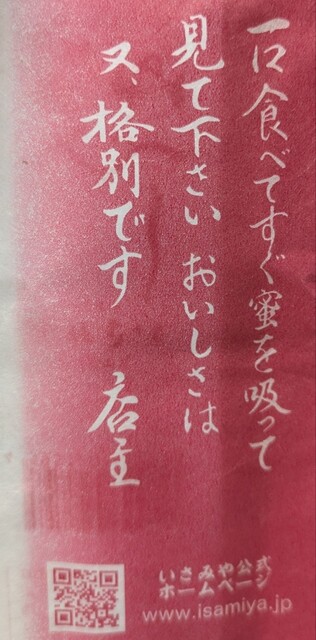 一口食べてすぐ蜜を吸って
見て下さい おいしさは
又、格別です 店主
いさみや公式
ホームページ
www.isamiya.jp